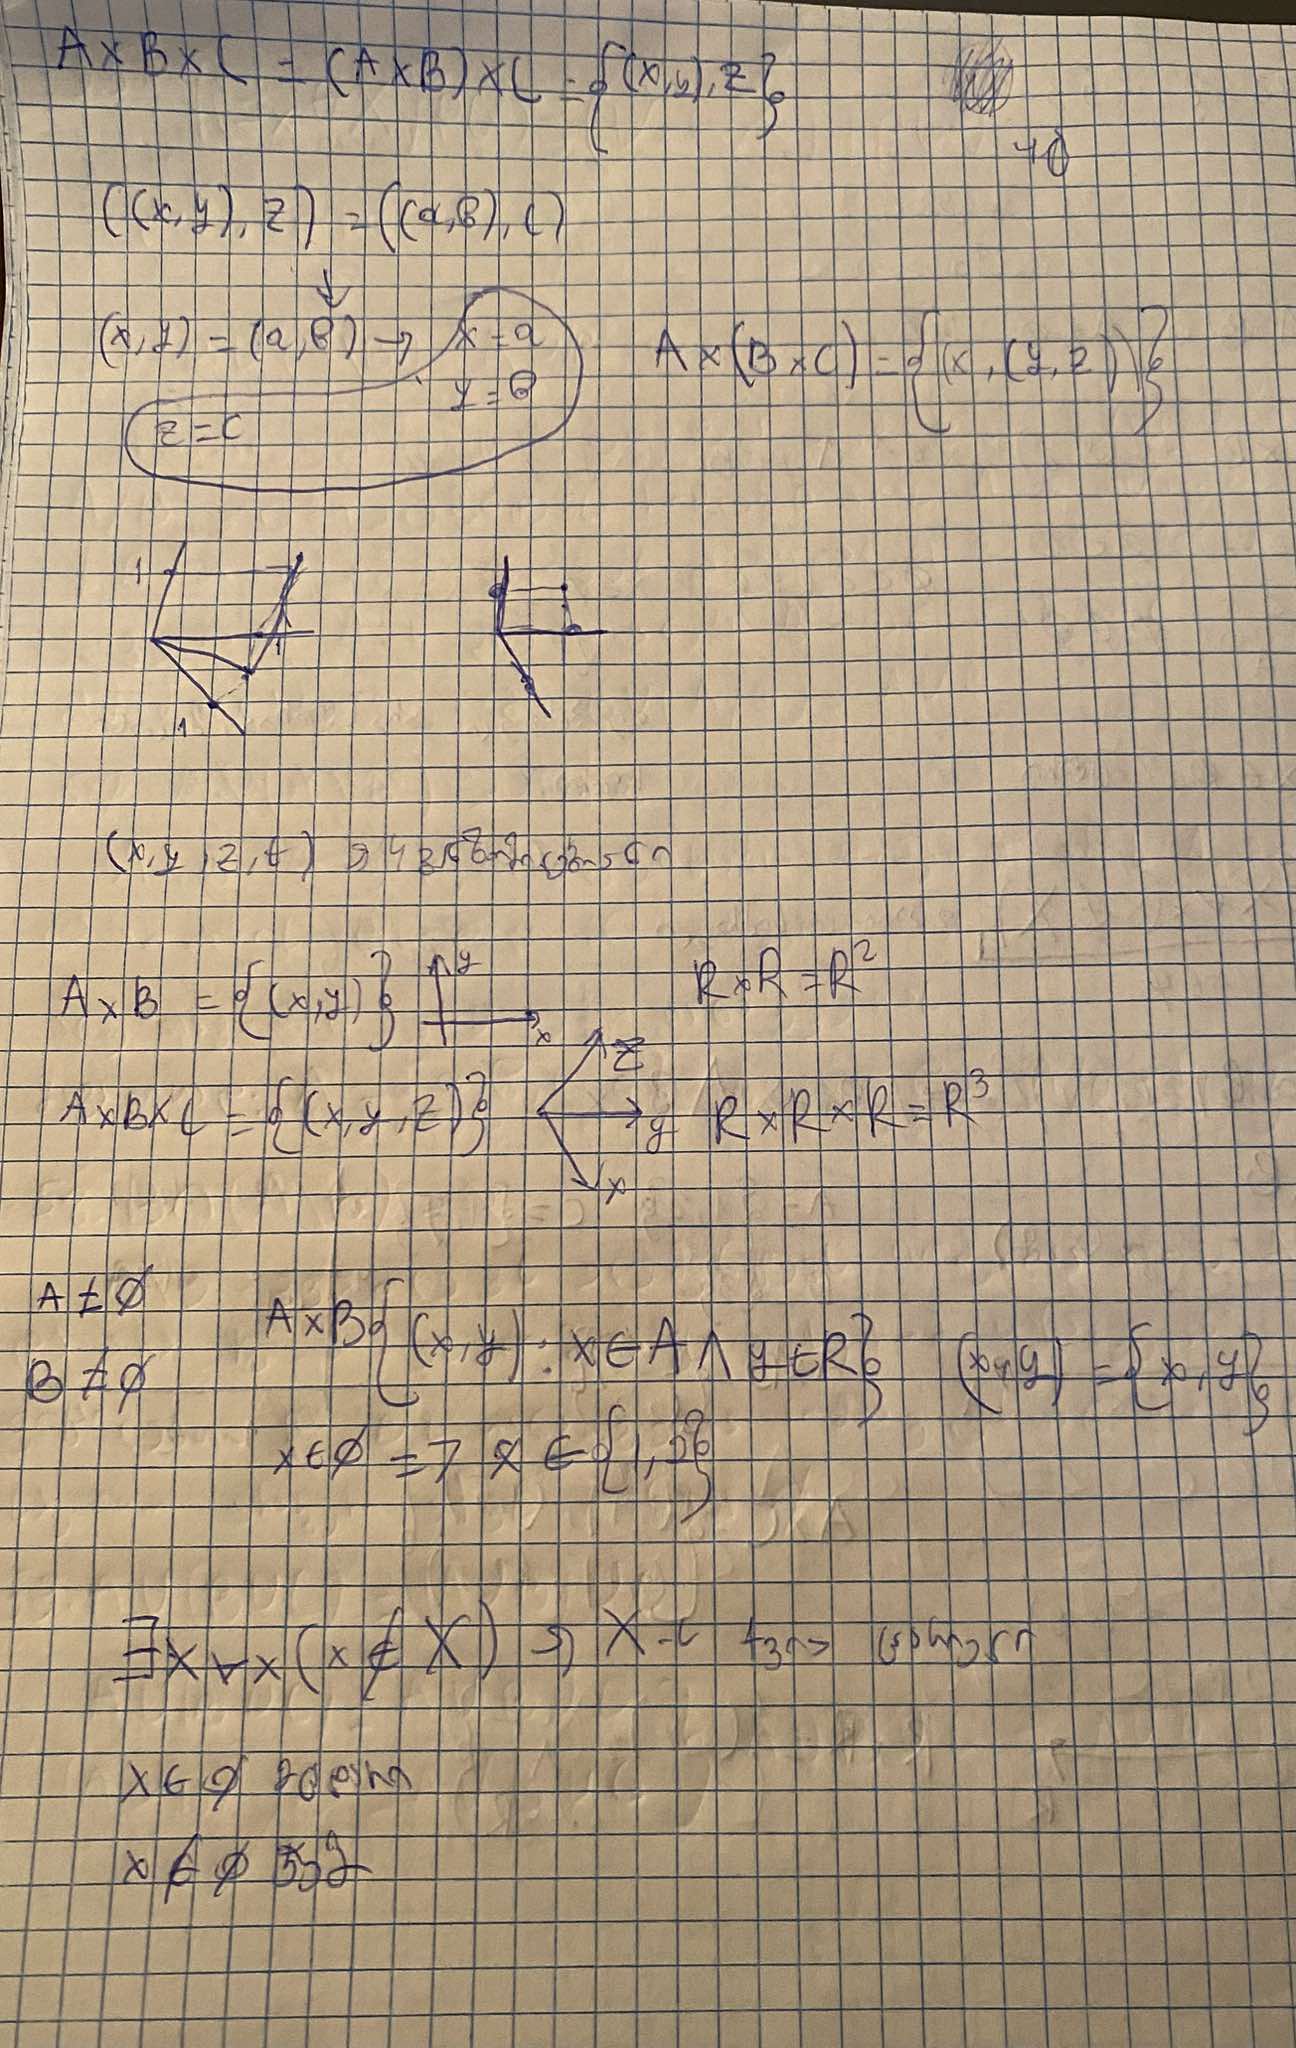 A×B×C = (A×B)×C = {(x,y),z}
40
((x,y),z) = ((a,b),c)
↓
(x,y) = (a,b) → x=a
y=b
z=c
A×(B×C) = {(x,(y,z))}
1
1
1
(x,y,z,t)
A×B = {(x,y)} y x R×R=R²
A×B×C = {(x,y,z)} z y x R×R×R=R³
A≠∅
B≠∅
A×B{(x,y): x∈A∧y∈R} (x,y) = {x,y}
x∈∅ => x∈{1,2}
∃X∀x(x∉X)
x∈∅
x∉∅